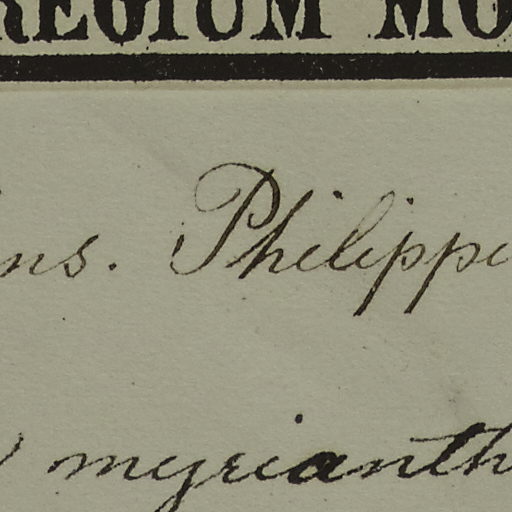 REGIUM MO
ns. Philippi
myrianth